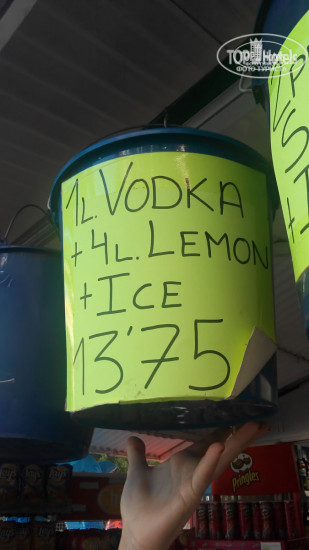 TOPHotels
ФОТО ТУРИСТА
1L. VODKA
+ 4L. LEMON
+ ICE
13'75
Pringles